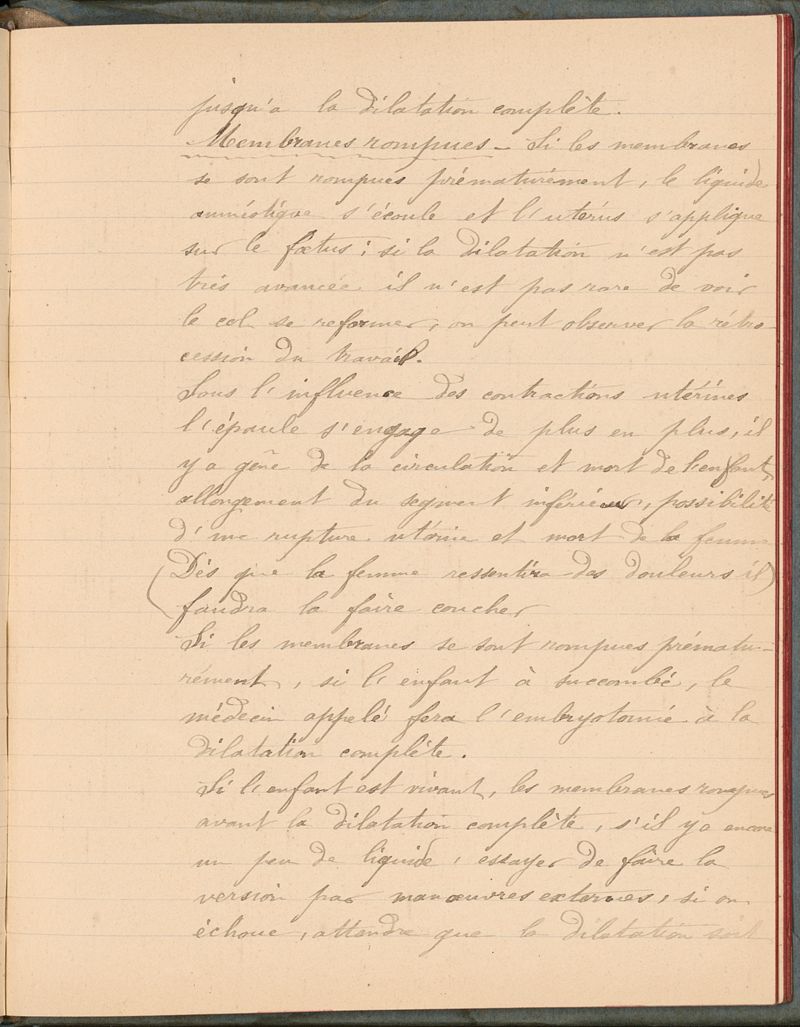 jusqu'a la dilatation complète.
Membranes rompues - Si les membranes
se sont rompues prématurément, le liquide
amniotique s'écoule et l'utérus s'applique
sur le fœtus ; si la dilatation n'est pas
très avancée il n'est pas rare de voir
le col se reformer, on peut observer la rétro-
cession du travail.
Sous l'influence des contractions utérines
l'épaule s'engage de plus en plus, il
y a gêne de la circulation et mort de l'enfant,
allongement du segment inférieur, possibilité
d'une rupture utérine et mort de la femme
(Dès que la femme ressentira des douleurs il)
faudra la faire coucher
Si les membranes se sont rompues prématu-
rément, si l'enfant à succombé, le
médecin appelé fera l'embryotomie à la
dilatation complète.
Si l'enfant est vivant, les membranes rompues
avant la dilatation complète, s'il y a encore
un peu de liquide, essayer de faire la
version par manœuvres externes, si on
échoue, attendre que la dilatation soit